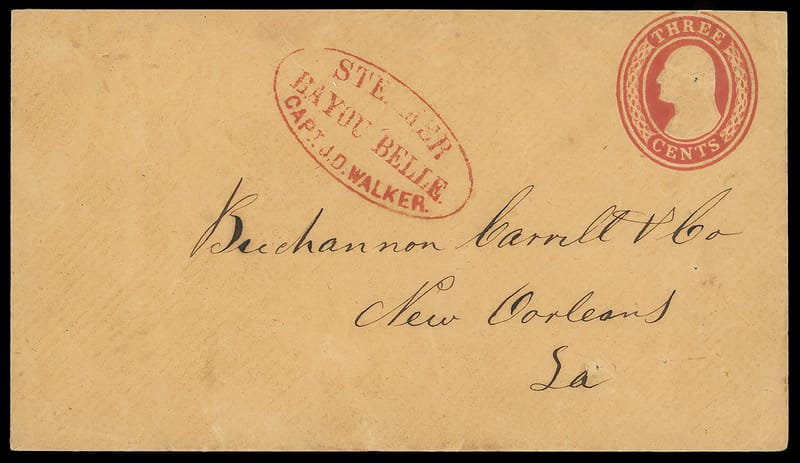 THREE
CENTS
STEAMER
BAYOU BELLE.
CAPT. J.D. WALKER.
Buchannon Carroll & Co
New Orleans
La